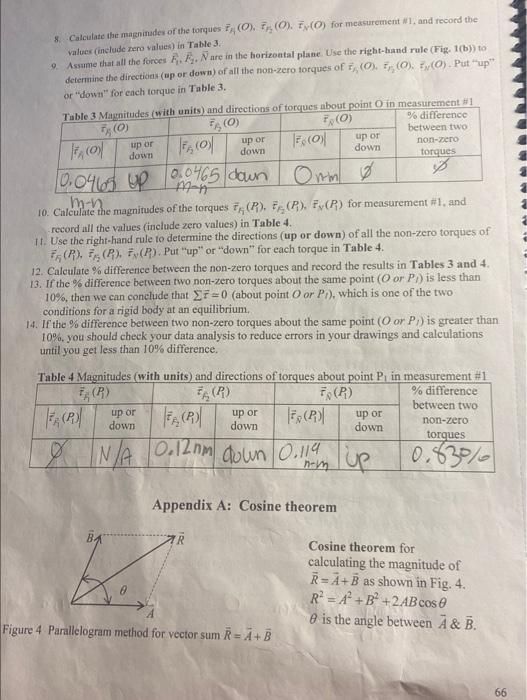 8. Calculate the magnitudes of the torques τ⃗_F₁(O), τ⃗_F₂(O), τ⃗_N(O) for measurement #1, and record the
values (include zero values) in Table 3.
9. Assume that all the forces F⃗₁, F⃗₂, N⃗ are in the horizontal plane. Use the right-hand rule (Fig. 1(b)) to
determine the directions (up or down) of all the non-zero torques of τ⃗_F₁(O), τ⃗_F₂(O), τ⃗_N(O). Put "up"
or "down" for each torque in Table 3.
Table 3 Magnitudes (with units) and directions of torques about point O in measurement #1
τ⃗_F₁(O) τ⃗_F₂(O) τ⃗_N(O) % difference between two non-zero torques
|τ⃗_F₁(O)| up or down |τ⃗_F₂(O)| up or down |τ⃗_N(O)| up or down
0.0465 m-n up 0.0465 m-n down 0 n-m ∅ ∅
10. Calculate the magnitudes of the torques τ⃗_F₁(P₁), τ⃗_F₂(P₁), τ⃗_N(P₁) for measurement #1, and
record all the values (include zero values) in Table 4.
11. Use the right-hand rule to determine the directions (up or down) of all the non-zero torques of
τ⃗_F₁(P₁), τ⃗_F₂(P₁), τ⃗_N(P₁). Put "up" or "down" for each torque in Table 4.
12. Calculate % difference between the non-zero torques and record the results in Tables 3 and 4.
13. If the % difference between two non-zero torques about the same point (O or P₁) is less than
10%, then we can conclude that Στ⃗ = 0 (about point O or P₁), which is one of the two
conditions for a rigid body at an equilibrium.
14. If the % difference between two non-zero torques about the same point (O or P₁) is greater than
10%, you should check your data analysis to reduce errors in your drawings and calculations
until you get less than 10% difference.
Table 4 Magnitudes (with units) and directions of torques about point P₁ in measurement #1
τ⃗_F₁(P₁) τ⃗_F₂(P₁) τ⃗_N(P₁) % difference between two non-zero torques
|τ⃗_F₁(P₁)| up or down |τ⃗_F₂(P₁)| up or down |τ⃗_N(P₁)| up or down
∅ N/A 0.12nm down 0.119 n-m up 0.83%
Appendix A: Cosine theorem
B⃗ R⃗
θ
A⃗
Figure 4 Parallelogram method for vector sum R⃗ = A⃗ + B⃗
Cosine theorem for
calculating the magnitude of
R⃗ = A⃗ + B⃗ as shown in Fig. 4.
R² = A² + B² + 2AB cos θ
θ is the angle between A⃗ & B⃗.
66